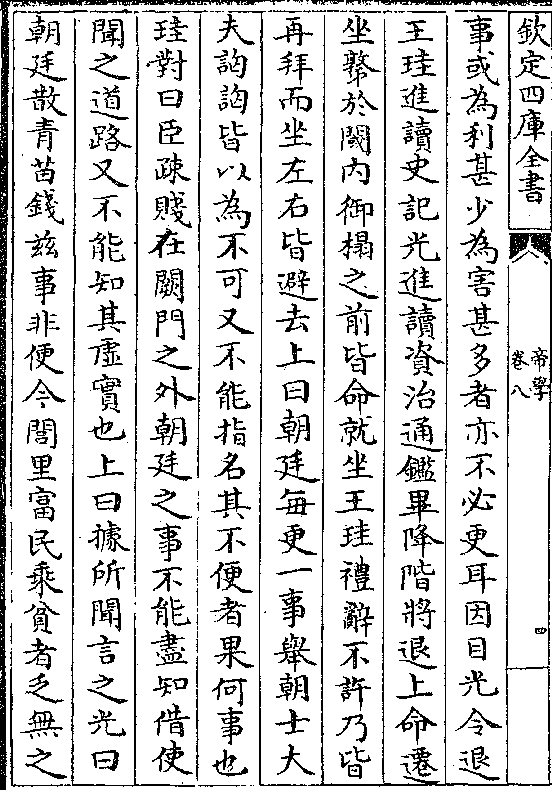 欽定四庫全書
帝學
卷八
四
事或為利甚少為害甚多者亦不必更耳因目光令退
王珪進讀史記光進讀資治通鑑畢降階將退上命遷
坐墩於閣內御榻之前皆命就坐王珪禮辭不許乃皆
再拜而坐左右皆避去上曰朝廷每更一事舉朝士大
夫詾詾皆以為不可又不能指名其不便者果何事也
珪對曰臣疎賤在闕門之外朝廷之事不能盡知借使
聞之道路又不能知其虛實也上曰據所聞言之光曰
朝廷散青苗錢兹事非便今閭里富民乘貧者乏無之